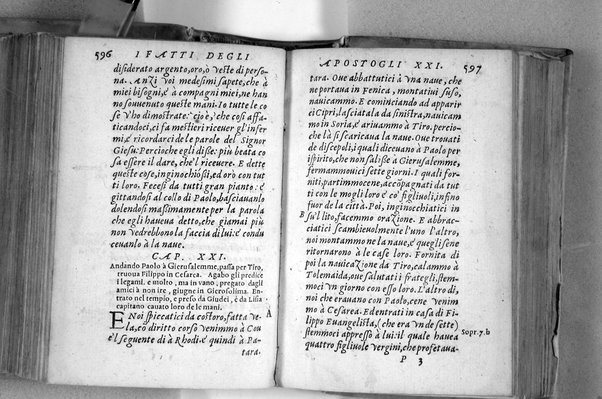 596 I FATTI DEGLI
disiderato argento, oro, ò veste di perso-
na. Anzi voi medesimi sapete, che à
miei bisogni, e à compagni miei, ne han
no souuenuto queste mani. Io tutte le co
se v'ho dimostrate: cio è, che così affa-
ticandoci, ci fa mestieri riceuer gl'infer
mi, e ricordarci de le parole del Signor
Giesu: Percioche egli disse: più beata co
sa essere il dare, che'l riceuere. E dette
queste cose, inginochiossi, ed orò con tut
ti loro. Fecesi da tutti gran pianto: e
gittandosi al collo di Paolo, basciauanlo
dolendosi massimamente per la parola
che egli haueua detto, che giamai più
non vedrebbono la faccia di lui: e condu
ceuanlo à la naue.
CAP. XXI.
Andando Paolo à Gierusalemme, passa per Tiro,
truoua Filippo in Cesarea. Agabo gli predice
i legami. e molto, ma in vano, pregato dagli
amici à non ire, giugne in Gierosolima. En-
trato nel tempio, e preso da Giudei, è da Lisa
capitano cauato loro de le mani.
A
E Noi spiccatici da costoro, fatta ve-
la, co diritto corso venimmo à Cou
e'l seguente dì à Rhodi. e quindi à Pa-
tara.
APOSTOGLI XXI. 597
tara. Oue abbattutici à vna naue, che
ne portaua in Fenica, montatiui suso,
nauicammo. E cominciando ad apparir
ci Cipri, lasciatala da sinistra, nauicam
mo in Soria, e ariuammo à Tiro. percio-
che là si scaricaua la naue. Oue trouati
de discepoli, i quali diceuano à Paolo per
ispirito, che non salisse à Gierusalemme,
fermammouici sette giorni. I quali for-
niti, partimmocene, accōpagnati da tut
ti con le mogli loro e co figliuoli, infino
fuor de la città. Poi, inginocchiatici in
B su'l lito, facemmo orazione. E abbrac-
ciatici scambieuolmente l'uno l'altro,
noi montammo ne la naue, e quegli sene
ritornarono à le case loro. Fornita di
poi la nauicazione da Tiro, calammo à
Tolemaida, oue salutati i frategli, stem-
moci vn giorno con esso loro. L'altro dì,
noi che erauamo con Paolo, cene venim
mo à Cesarea. Ed entrati in casa di Fi-
lippo Euangelista, (che era vn de sette)
stemmoci appresso à lui: il quale haueua
quattro figliuole vergini, che profetaua-
Sopr. 7. b
P 3